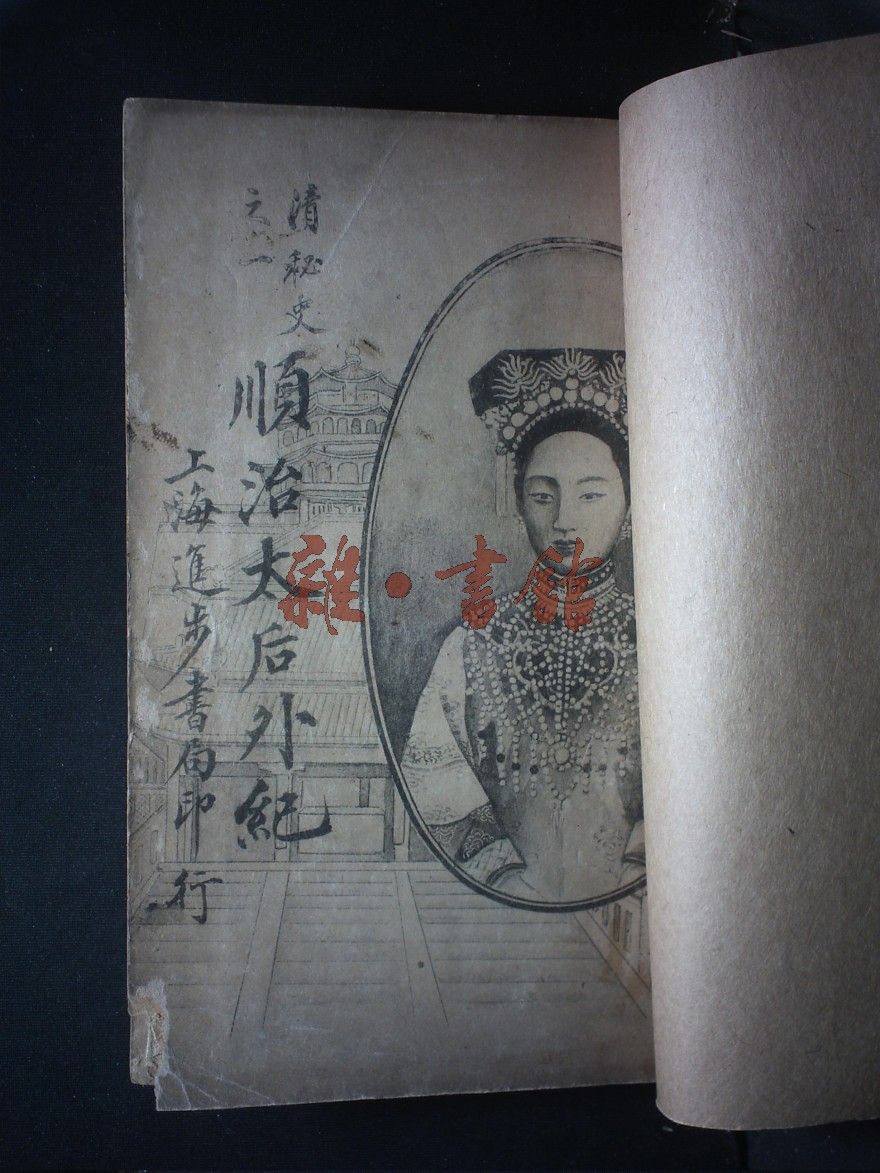 清秘史
之
順治太后外紀
上海進步書局印行
雜·書館